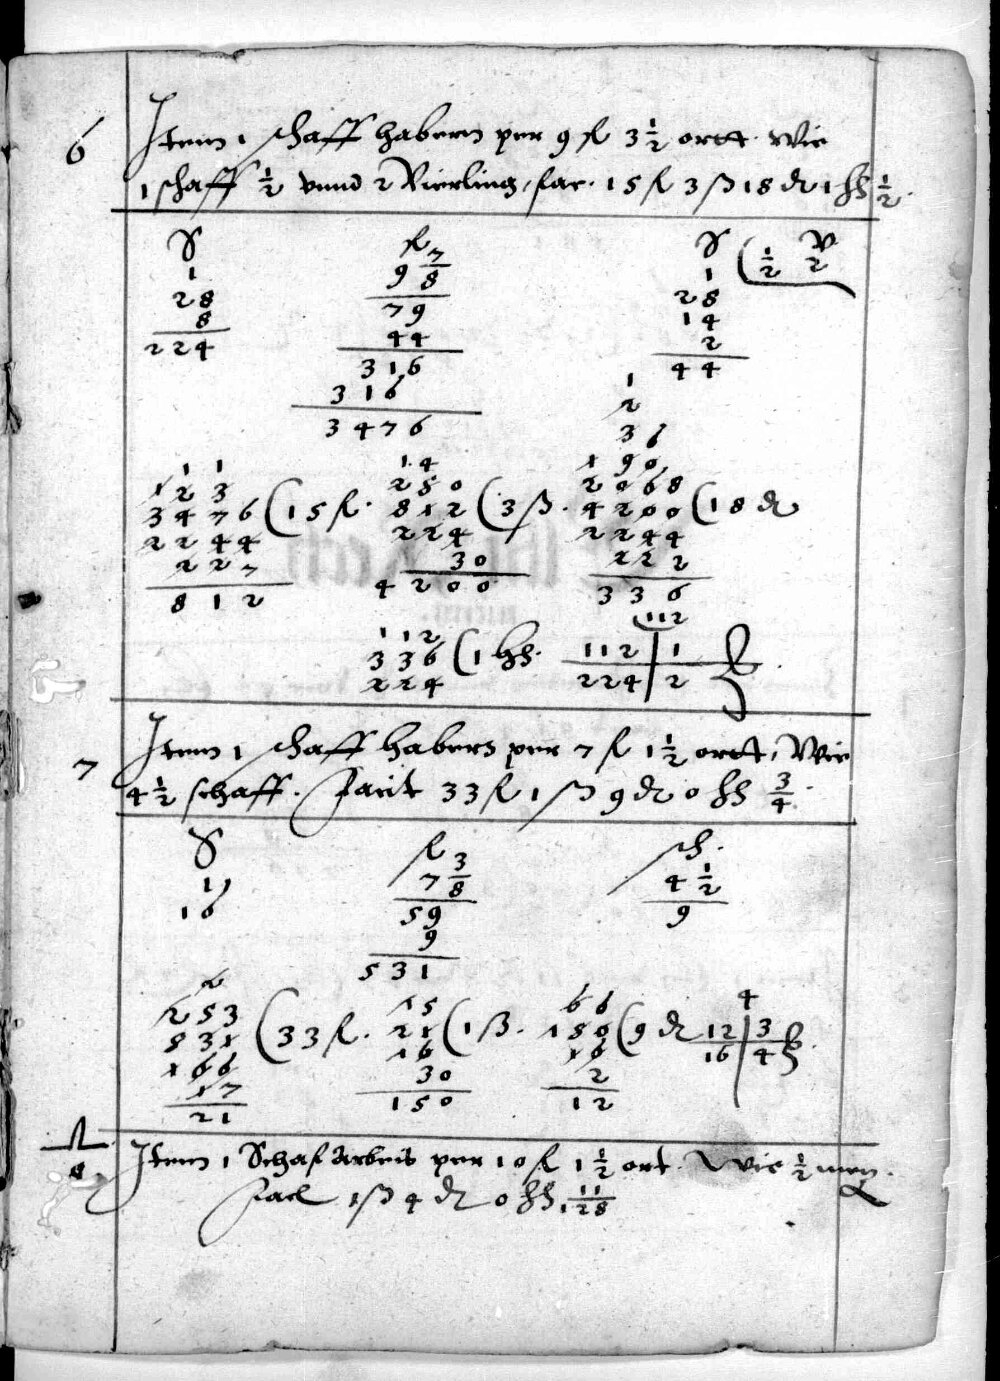 6 Item 1 schaff habern per 9 fl 3 1/2 ortt. Wie
1 schaff 1/2 vnnd 2 Vierling, fac. 15 fl 3 ß 18 dr 1 hh 1/2.
S fl S V
1 9 7/8 1 ( 1/2 2
28 79 28
8 44 14
224 316 2
316 44
3476
1
2
3 6
1 1 1 4 1 9 0
1 2 3 2 5 0 2 0 6 8
3 4 7 6 ( 15 fl. 8 1 2 ( 3 ß. 4 2 0 0 ( 18 dr
2 2 4 4 2 2 4 2 2 4 4
2 2 7 30 2 2 2
8 1 2 4 2 0 0 3 3 6
112
1 1 2
3 3 6 ( 1 hh. 112 | 1
2 2 4 224 | 2
7 Item 1 schaff habern per 7 fl 1 1/2 ortt, Wie
4 1/2 schaff. Facit 33 fl 1 ß 9 dr 0 hh 3/4.
S fl sch.
1 7 3/8 4 1/2
16 59 9
9
531
2
2 5 3 1 5 6 6
5 3 1 ( 33 fl. 2 1 ( 1 ß. 1 5 0 ( 9 dr 12 | 3
1 6 6 1 6 1 6 16 | 4
1 7 30 2 4
2 1 1 5 0 1 2
8 Item 1 Schaf Arbeis per 10 fl 1 1/2 ort. Wie 1/2 men.
Facl 1 ß 4 dr 0 hh 11/128